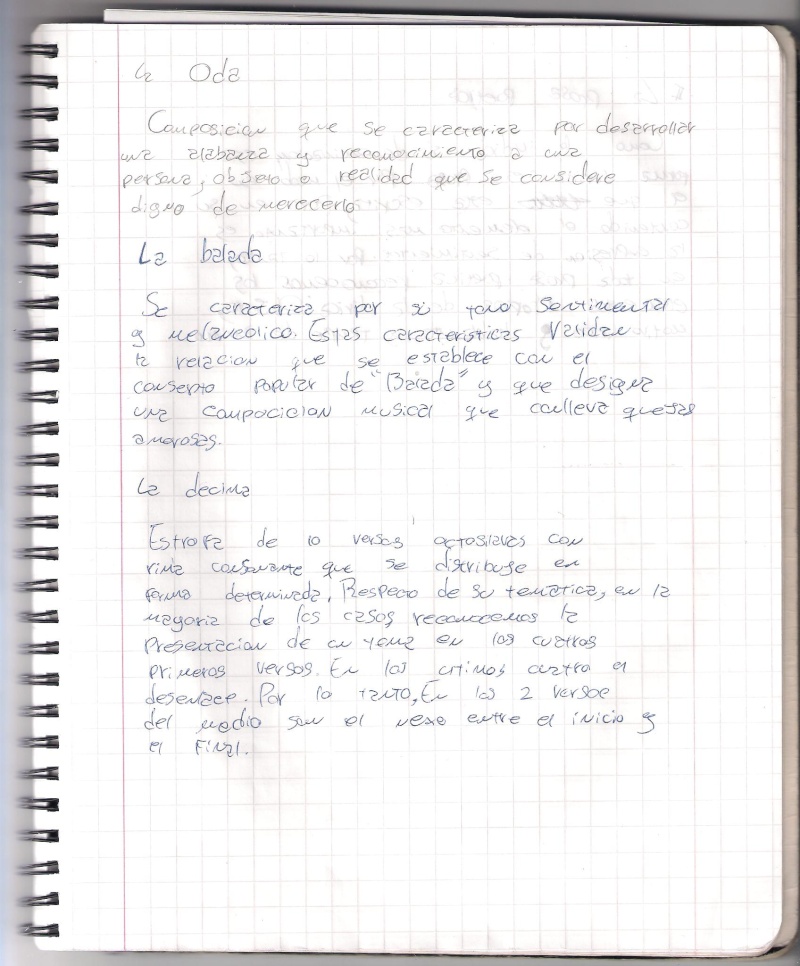 La Oda
Composicion que se caracteriza por desarrollar
una alabanza y reconocimiento a una
persona, objeto o realidad que se considere
digno de merecerlo
La balada
Se caracteriza por su tono sentimental
y melancolico. Estas caracteristicas validan
la relacion que se establece con el
consepto popular de "Balada" y que designa
una compocicion musical que conlleva quejas
amorosas.
La decima
Estrofa de 10 versos octosilavos con
rima consonante que se distribuye en
forma determinada. Respecto de su tematica, en la
mayoria de los casos reconocemos la
Presentacion de un tema en los cuatros
primeros versos. En los ultimos cuatro el
desenlace. Por lo tanto, En los 2 versos
del medio son el nexo entre el inicio y
el Final.